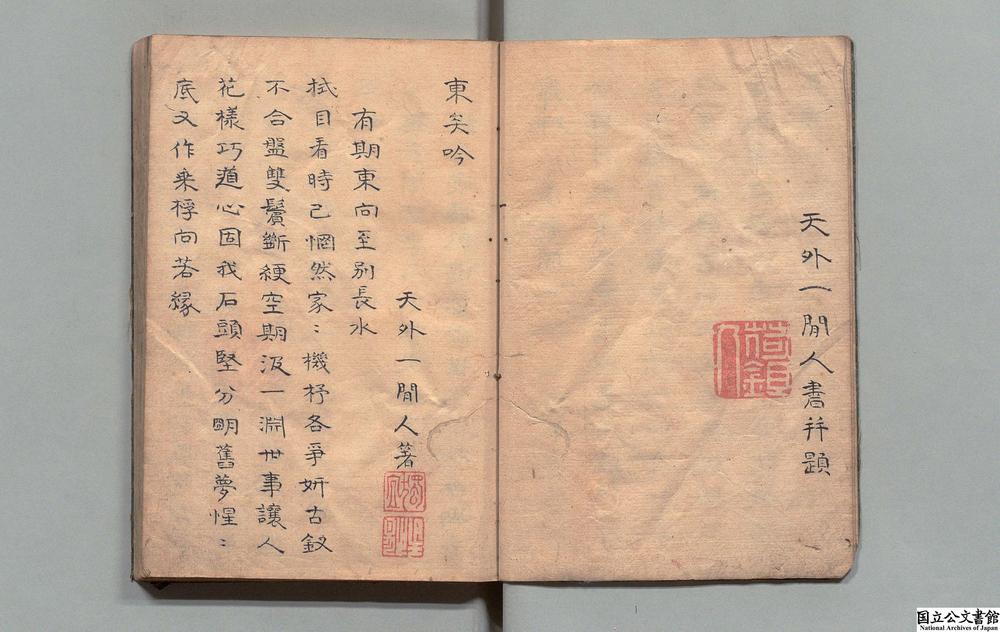 天外一閒人書并題
東矣吟
天外一閒人著
有期東向至別長水
拭目看時己惘然家〻機杼各爭妍古釵
不合盤雙鬢斷綆空期汲一淵世事讓人
花樣巧道心固我石頭堅分明舊夢惺〻
底又作乘桴向若緣
国立公文書館
National Archives of Japan